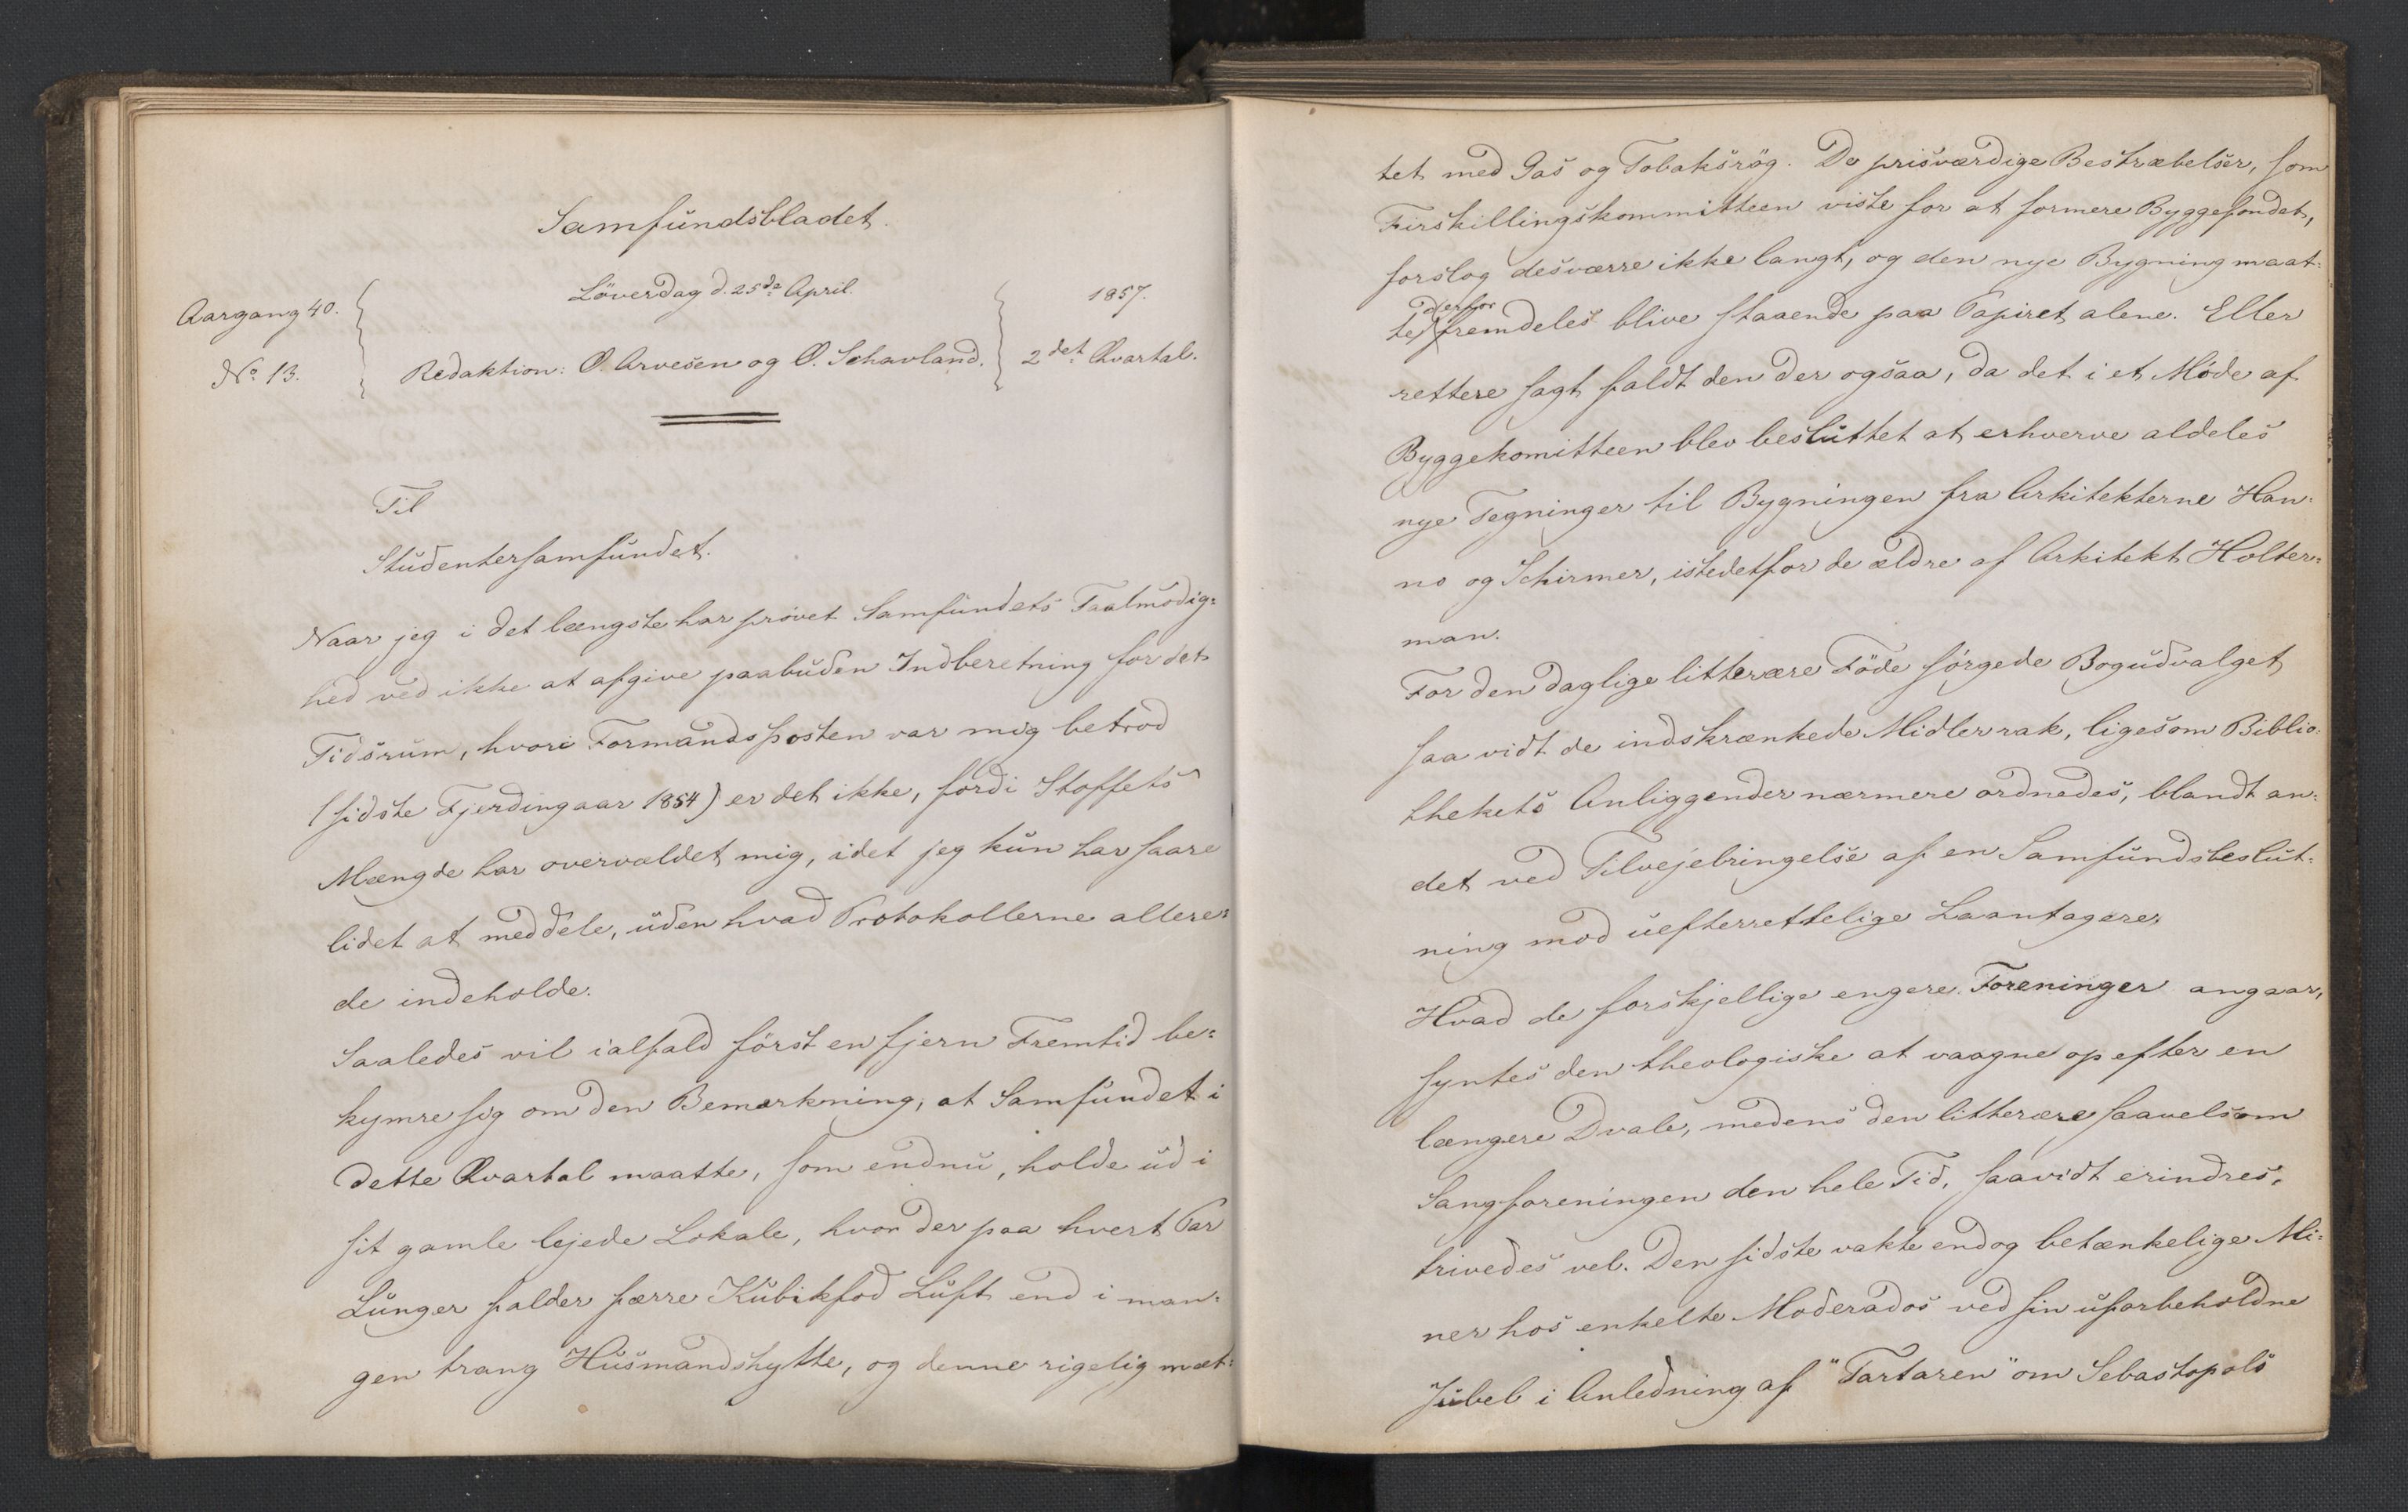 Samfundsbladet.
Aargang 40.
No 13.
Löverdag d. 25de April.
Redaktion: O. Arvesen og O. Schavland.
1857.
2det Qvartal.
Til
Studentersamfundet.
Naar jeg i det længste har prövet Samfundets Taalmodig=
hed ved ikke at afgive paabuden Indberetning for det
Tidsrum, hvori Formandsposten var mig betrod
(sidste Fjerdingaar 1854) er det ikke, fordi Stoffets
Mængde har overvældet mig, idet jeg kun har saare
lidet at meddele, uden hvad Protokollerne allere=
de indeholde.
Saaledes vil ialfald först en fjern Fremtid be=
kymre sig om den Bemærkning, at Samfundet i
dette Qvartal maatte, som endnu, holde ud i
sit gamle lejede Lokale, hvor der paa hvert Par
Lunger falder færre Kubikfod Luft end i man=
gen trang Husmandshytte, og denne rigelig mæt=
tet med Gas og Tobaksrög. De prisværdige Bestræbelser, som
Firskillingskommitteen viste for at formere Byggefondet,
forslog desværre ikke langt, og den nye Bygning maat=
te derfor fremdeles blive staaende paa Papiret alene. Eller
rettere sagt faldt den der ogsaa, da det i et Möde af
Byggekomitteen blev besluttet at erhverve aldeles
nye Tegninger til Bygningen fra Arkitekterne Han=
no og Schirmer, istedetfor de ældre af Arkitekt Holter=
man.
For den daglige litterære Föde sörgede Bogudvalget
saa vidt de indskrænkede Midler rak, ligesom Biblio=
thekets Anliggender nærmere ordnedes, blandt an=
det ved Tilvejebringelse af en Samfundsbeslut=
ning mod uefterrettelige Laantagere.
Hvad de forskjellige engere Foreninger angaar,
syntes den theologiske at vaagne op efter en
længere Dvale, medens den litterære saavelsom
Sangforeningen den hele Tid, saavidt erindres,
trivedes vel. Den sidste vakte endog betænkelige Mi=
ner hos enkelte Moderados ved sin uforbeholdne
Jubel i Anledning af "Tartaren" om Sebastopols